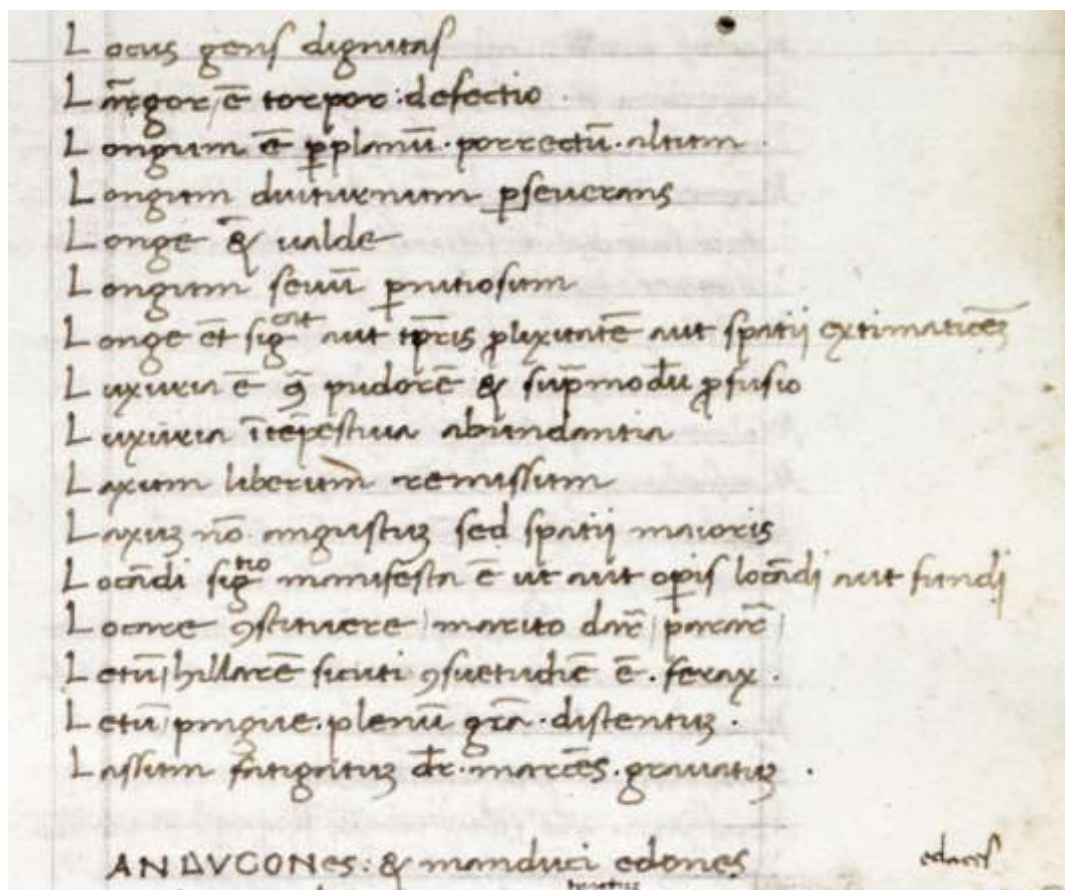 Locus gens dignitas
Langor ē torpor: defectio .
Longum ē ꝑplanū · porrectū · altum .
Longum diuturnum ꝑseuerans
Longe & ualde
Longum seuū ꝑnitiosum
Longe et̄ sigcat aut tꝑris ꝓlixitatē aut spatii extimaticēꝫ
Luxuria ē ꝯ pudorē & supmodū ꝓfusio
Luxuria ītēpestiua abundantia
Laxum liberum remissum
Laxuꝫ nō angustuꝫ sed spatii maioris
Locādi sigtio manifesta ē ut aut oꝑis locādi aut fundi
Locare ꝯstituere | marito dar̄ | parar̄ |
Letū | hillarē sicuti ꝯsuetudiē ē . ferax .
Letū | pingue . plenū gr̄a · distentuꝫ .
Lassum fatigatuꝫ dr̄ · marcēs · grauatuꝫ .
ANDVCONes: & manduci edones edaces